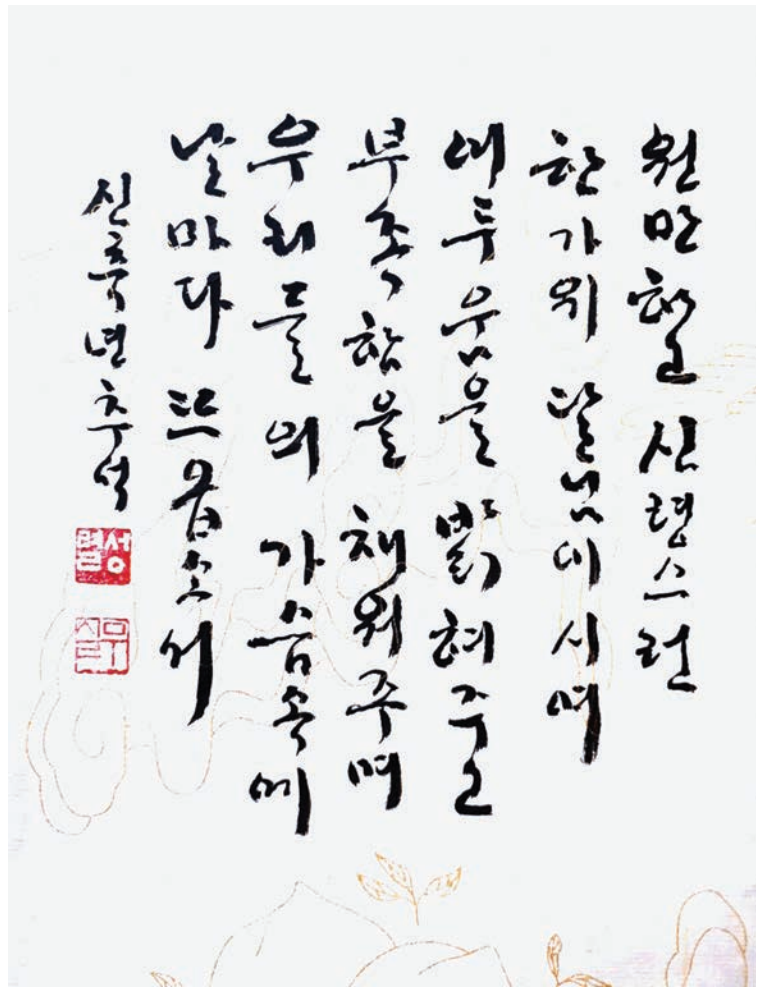 원만하고 신령스런
한가위 달님이시여
어두움을 밝혀주고
부족함을 채워주며
우리들의 가슴속에
날마다 뜨옵소서
신축년 추석